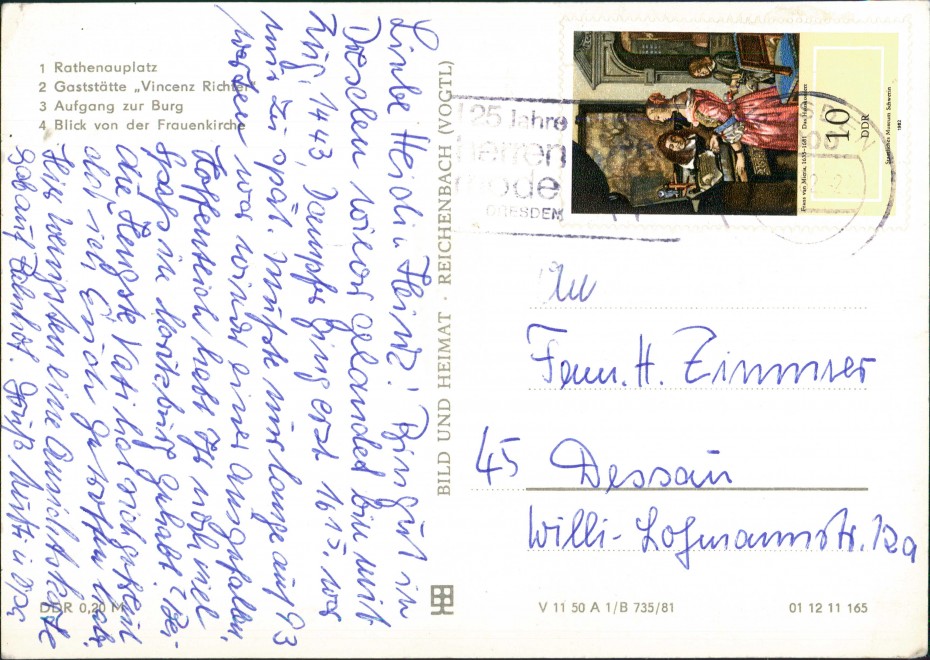 1 Rathenauplatz
2 Gaststätte „Vincenz Richter"
3 Aufgang zur Burg
4 Blick von der Frauenkirche
Liebe Heidi u. Heinz! Bin gut in
Dresden wieder gelandet bin mit
Zug 1443, Dampfer ging erst 1615. war
mir zu spät. Mußte nur lange auf 93
warten war wieder einer ausgefallen.
Hoffentlich habt Ihr noch viel
Spaß in Moritzburg gehabt.
die Hengste Vati hat sich gefreut
aber sich
Hier wenigstens eine Ansichtskarte
Gab auf Bahnhof. Gruß Mutti u. Opa
BILD UND HEIMAT · REICHENBACH (VOGTL)
125 Jahre
herren
mode
DRESDEN
Frans van Mieris, 1635-1681
10
DDR
Staatliches Museum Schwerin
1982
An
Fam. H. Zimmer
45 Dessau
Willi-Lohmannstr. 12a
DDR 0,20 M
V 11 50 A 1/B 735/81
01 12 11 165